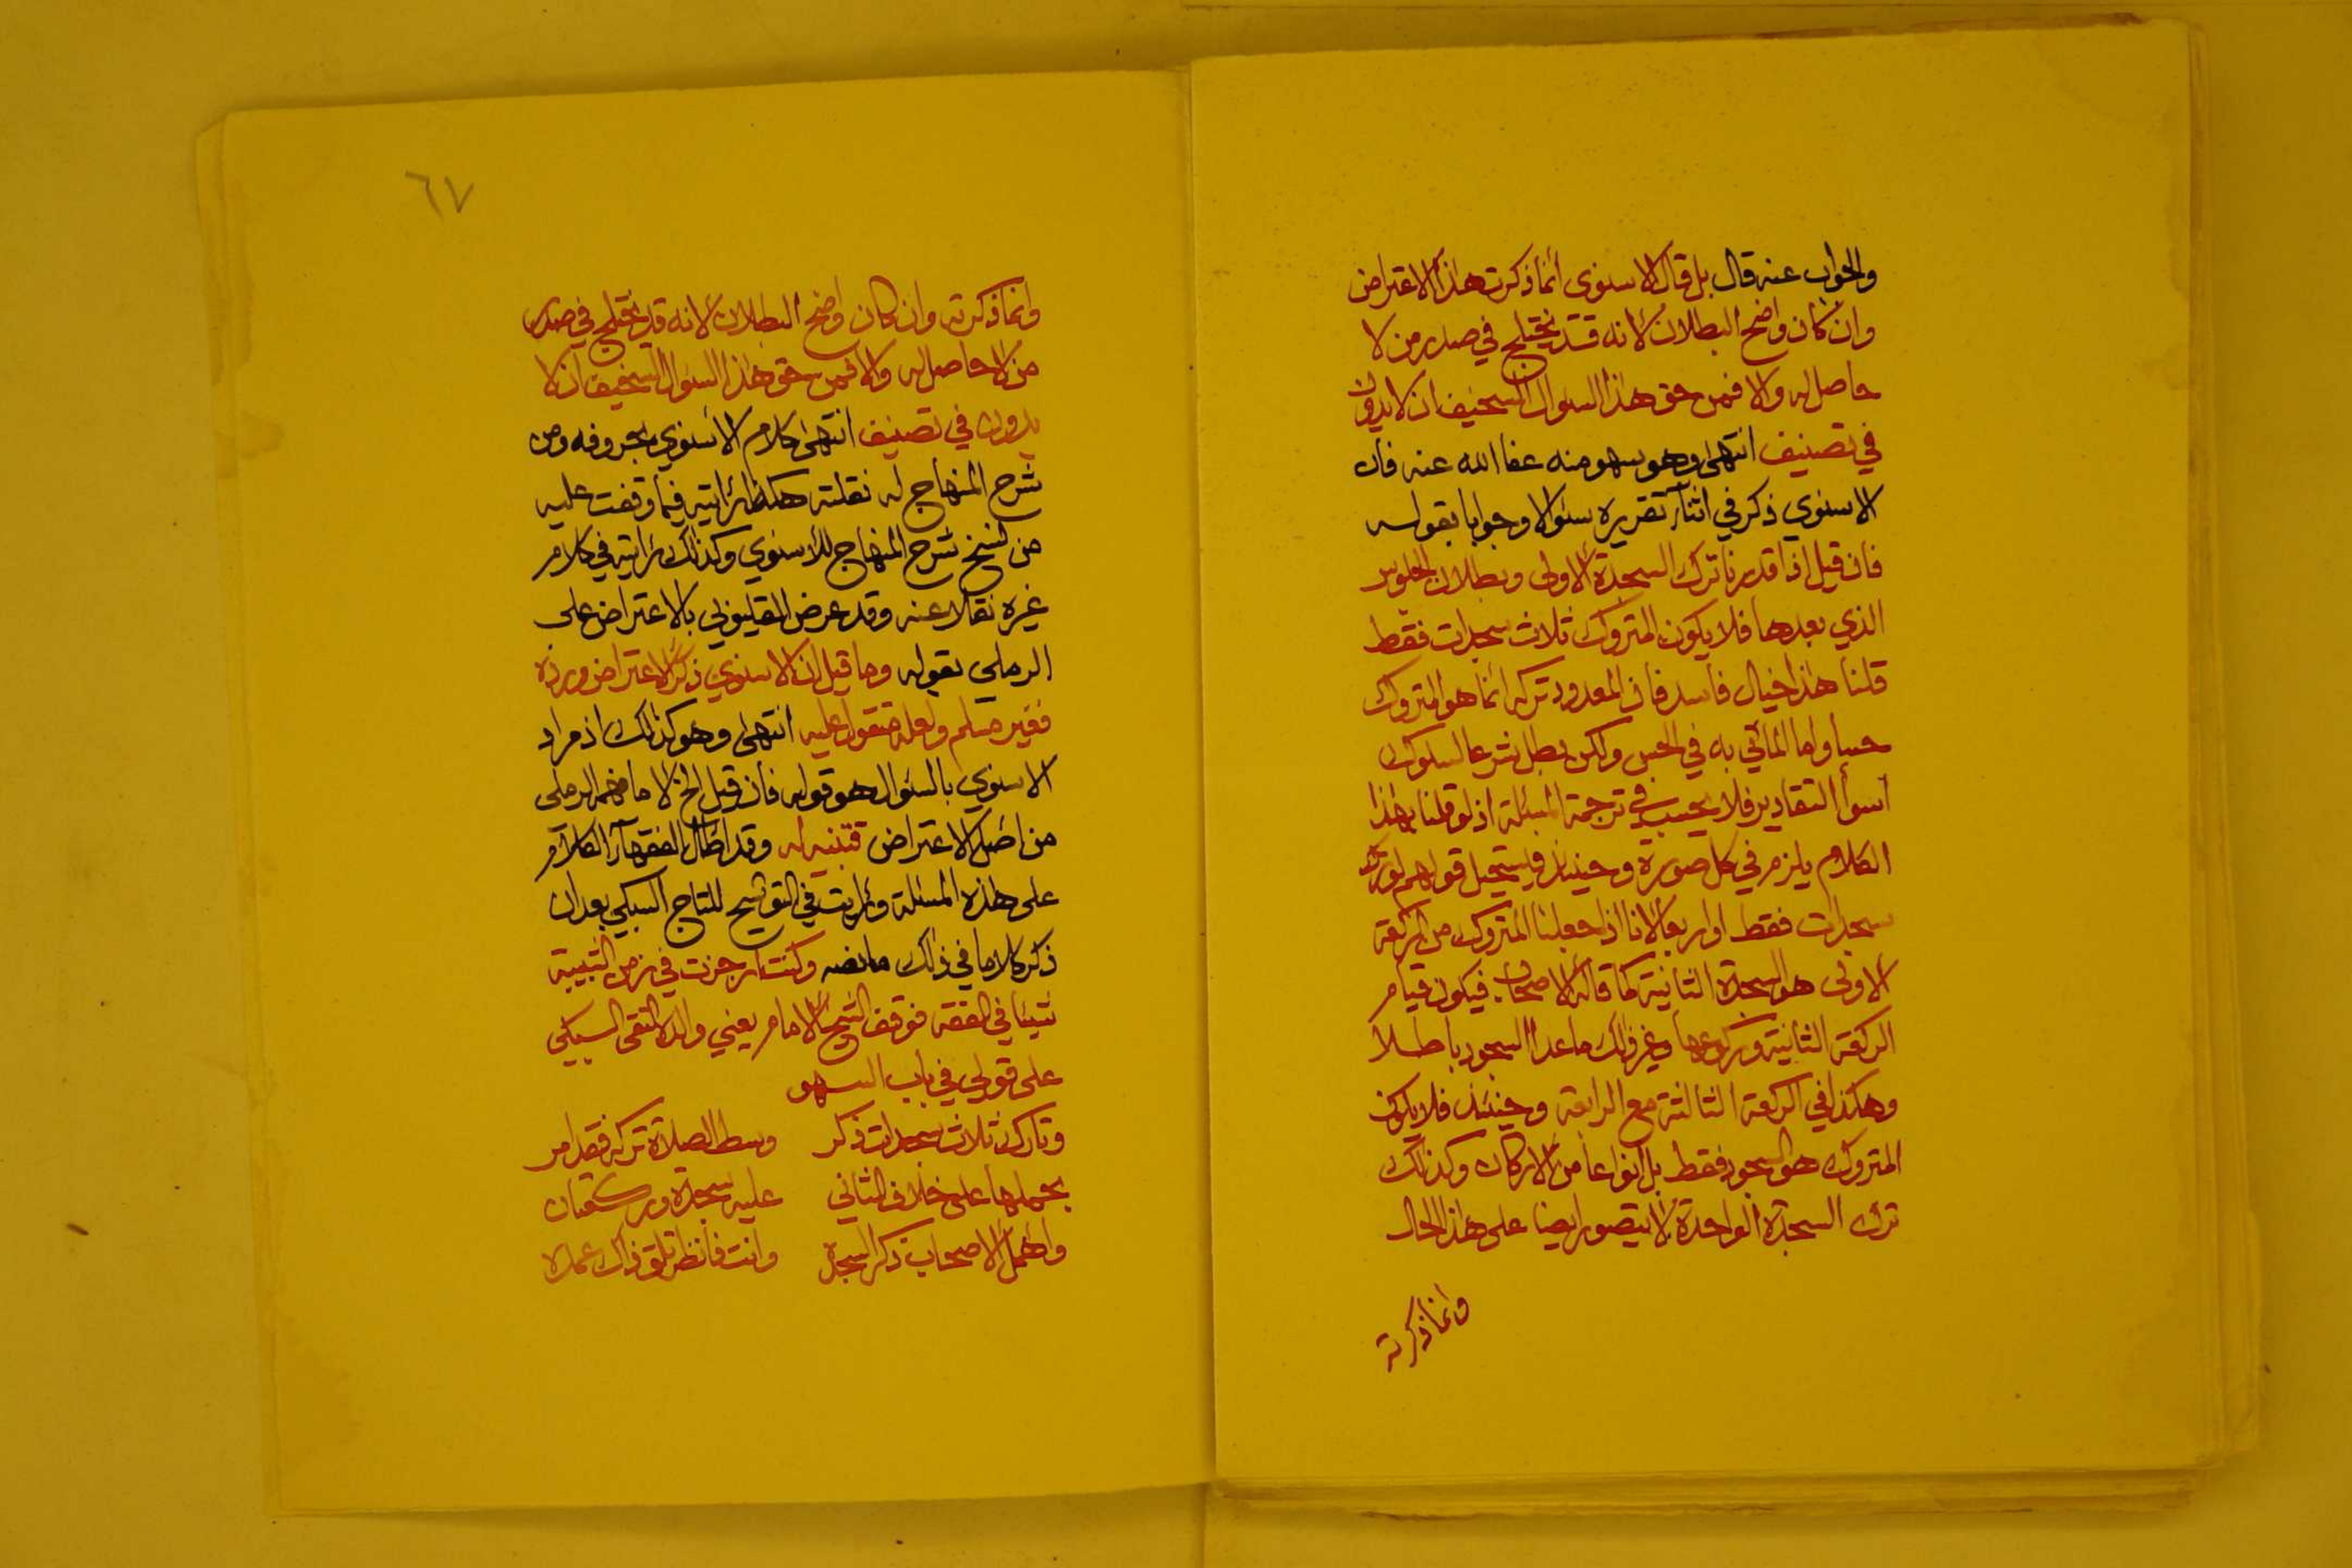 والجواب عنه قال بل قال الاسنوى انما ذكرت هذا الاعتراض
وان كان واضح البطلان لانه قد يختلج في صدر من لا
حاصل له والا فمن حق هذا السوال السخيف ان لا يدون
في تصنيف انتهى وهو سهو منه عفا الله عنه فان
الاسنوي ذكر في اثنآء تقريره سئوالا وجوابا بقوله
فان قيل اذا قدرنا ترك السجدة الاولى وبطلان الجلوس
الذي بعدها فلا يكون المتروك ثلاث سجدات فقط
قلنا هذا خيال فاسد فان المعدود تركه انما هو المتروك
حسا واما الماتي به في الحس ولكن بطل شرعا لسلوك
اسوأ التقادير فلا يحسب في ترجمة المسئلة اذ لو قلنا بهذا
الكلام يلزم في كل صورة وحينئذ فيستحيل قولهم لو ترك
سجدات فقط او اربعا لانا اذا جعلنا المتروك من الركعة
الاولى هو السجدة الثانية كما قاله الاصحاب فيكون قيام
الركعة الثانية وركوعها وغير ذلك ما عدا السجود باطلا
وهكذا في الركعة الثالثة مع الرابعة وحينئذ فلا يكون
المتروك هو السجود فقط بل انواعا من الاركان وكذلك
ترك السجدة الواحدة لا يتصور ايضا على هذا الحال
وانما ذكرته
٦٧
وانما ذكرته وان كان واضح البطلان لانه قد يختلج في صدر
من لا حاصل له والا فمن حق هذا السئوال السخيف ان لا
يدون في تصنيف انتهى كلام الاسنوي بحروفه ومن
شرح المنهاج له نقلته هكذا رايته فيما وقفت عليه
من نسخ شرح المنهاج للاسنوي وكذلك رايته في كلام
غيره نقلا عنه وقد عرض القليوبي بالاعتراض على
الرملي بقوله وما قيل ان الاسنوي ذكر الاعتراض ورده
فغير مسلم ولعله متقول عليه انتهى وهو كذلك اذ مراد
الاسنوي بالسئوال هو قوله فان قيل الخ لا ما فهمه الرملى
من اصل الاعتراض فتنبه له وقد اطال الفقهآء الكلام
على هذه المسئلة ورايت في التوشيح للتاج السبكي بعد ان
ذكر كلاما في ذلك ما نصه وكنت ارجزت في زمن الشبيبة
شيئا في الفقه فوقف الشيخ الامام يعني والده التقى السبكي
على قولي في باب السهو
وتارك ثلاث سجدات ذكر وسط الصلاة تركه فقد امر
بحملها على خلاف الثاني عليه سجدة وركعتان
واهمل الاصحاب ذكر السجدة وانت فانظر تلق ذاك عمده